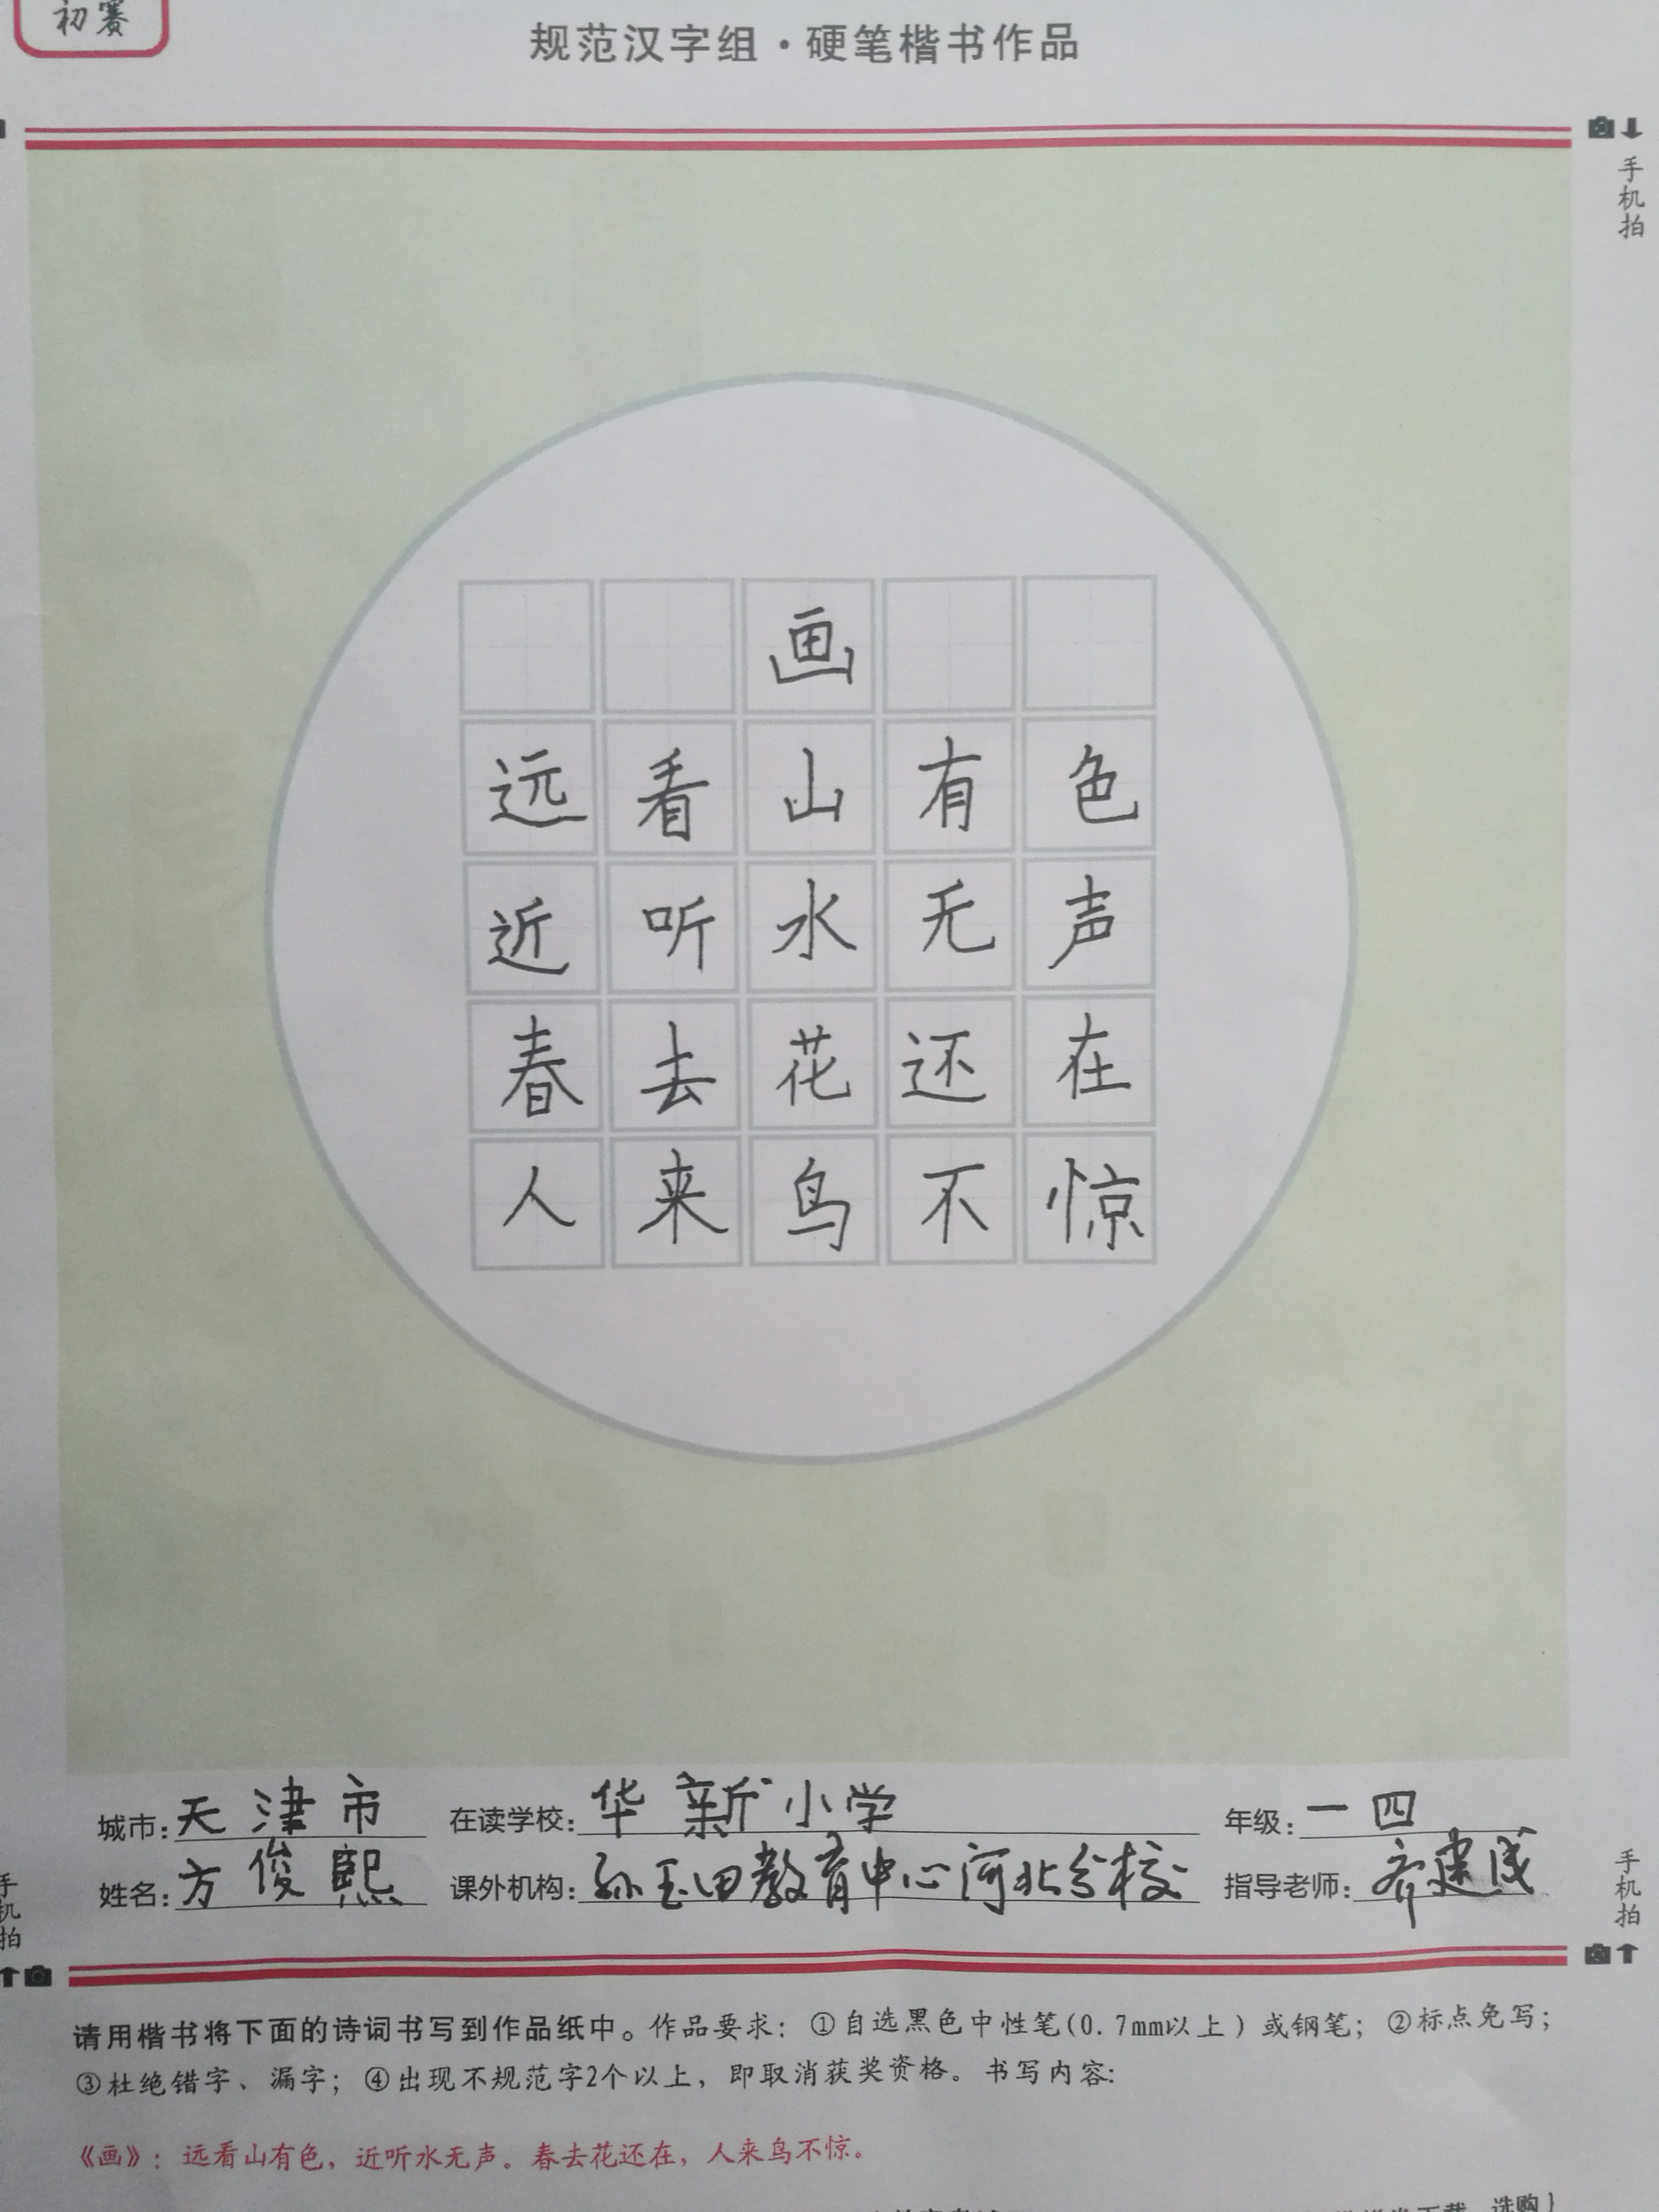 初赛
规范汉字组·硬笔楷书作品
手机拍
画
远看山有色
近听水无声
春去花还在
人来鸟不惊
城市:天津市 在读学校:华新小学 年级:一四
姓名:方俊熙 课外机构:孙玉田教育中心河北分校 指导老师:齐建成
手机拍
手机拍
请用楷书将下面的诗词书写到作品纸中。作品要求:①自选黑色中性笔(0.7mm以上)或钢笔;②标点免写;
③杜绝错字、漏字;④出现不规范字2个以上,即取消获奖资格。书写内容:
《画》:远看山有色,近听水无声。春去花还在,人来鸟不惊。